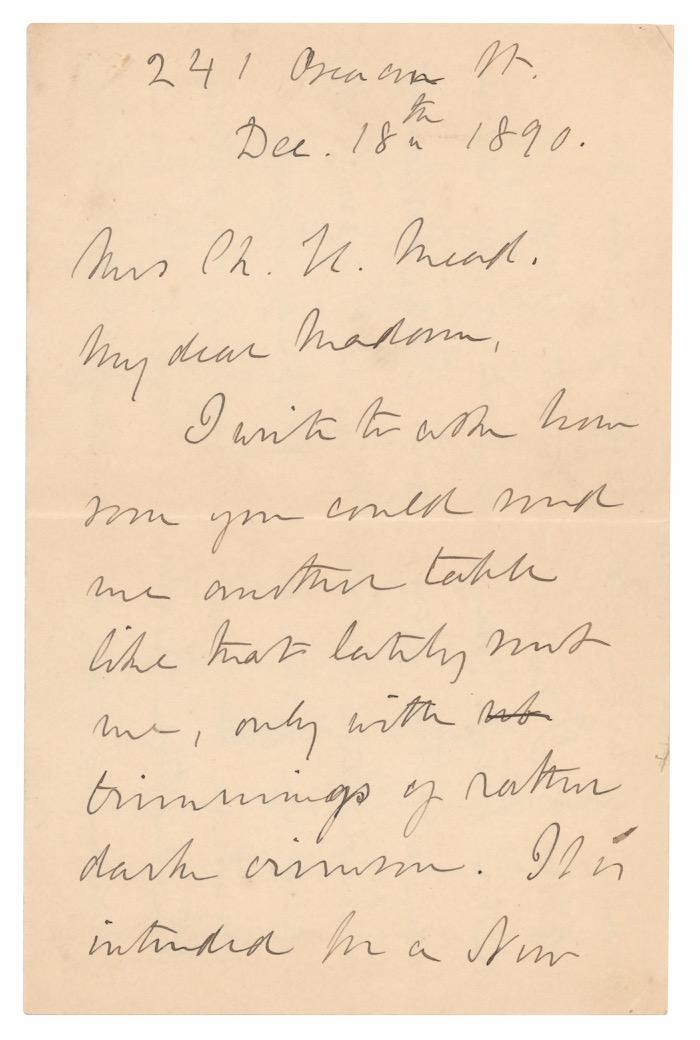 241 Beacon St.
Dec. 18th 1890.
Mrs Ch. H. Mead.
My dear Madam,
I write to ask how
soon you could send
me another table
like that lately sent
me, only with
trimmings of rather
dark crimson. It is
intended for a New